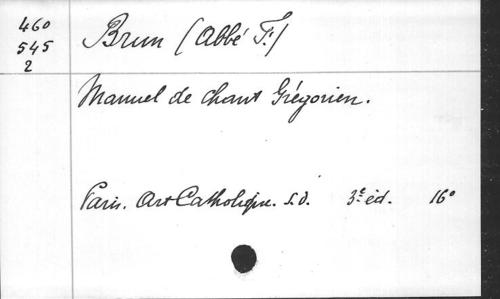 460
545
2
Brun (Abbé F.)
Manuel de chant Grégorien.
Paris. Art Catholique. s.d. 3e éd. 16°